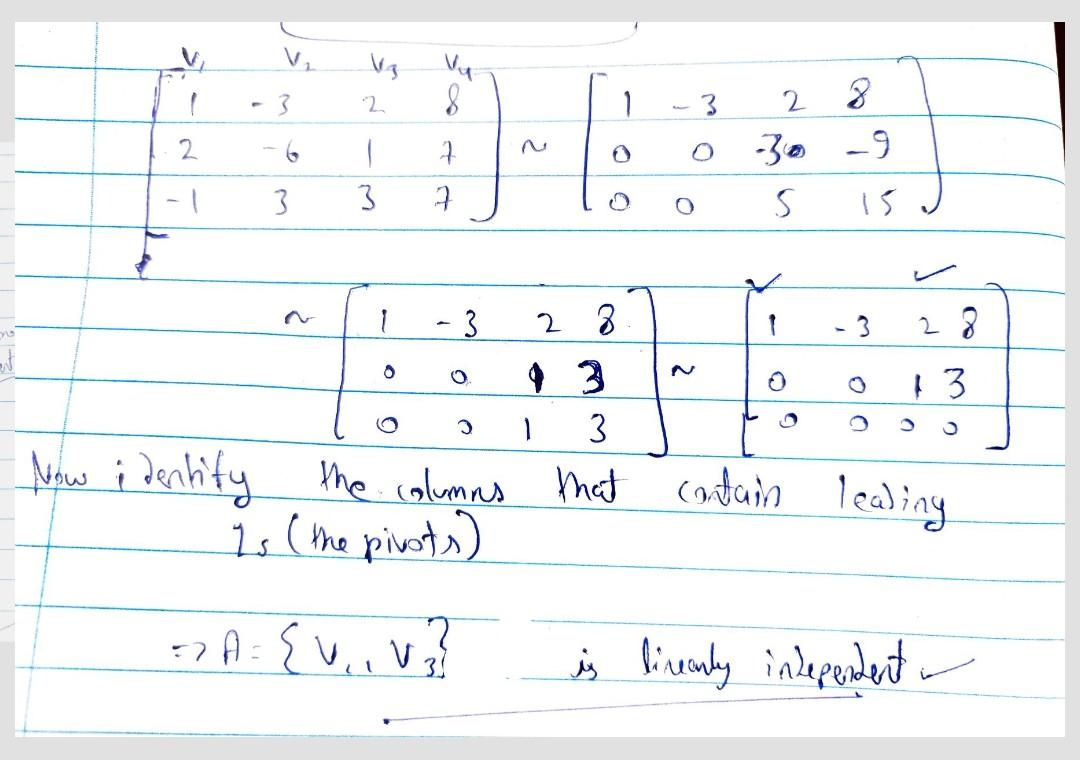 V₁ V₂ V₃ V₄
1 -3 2 8
2 -6 1 7
-1 3 3 7
~
1 -3 2 8
0 0 -3 -9
0 0 5 15
~
1 -3 2 8
0 0 1 3
0 0 1 3
~
✓ ✓
1 -3 2 8
0 0 1 3
0 0 0 0
Now identify the columns that contain leading
1s (the pivots)
=> A = { V₁, V₃} is linearly independent ✓